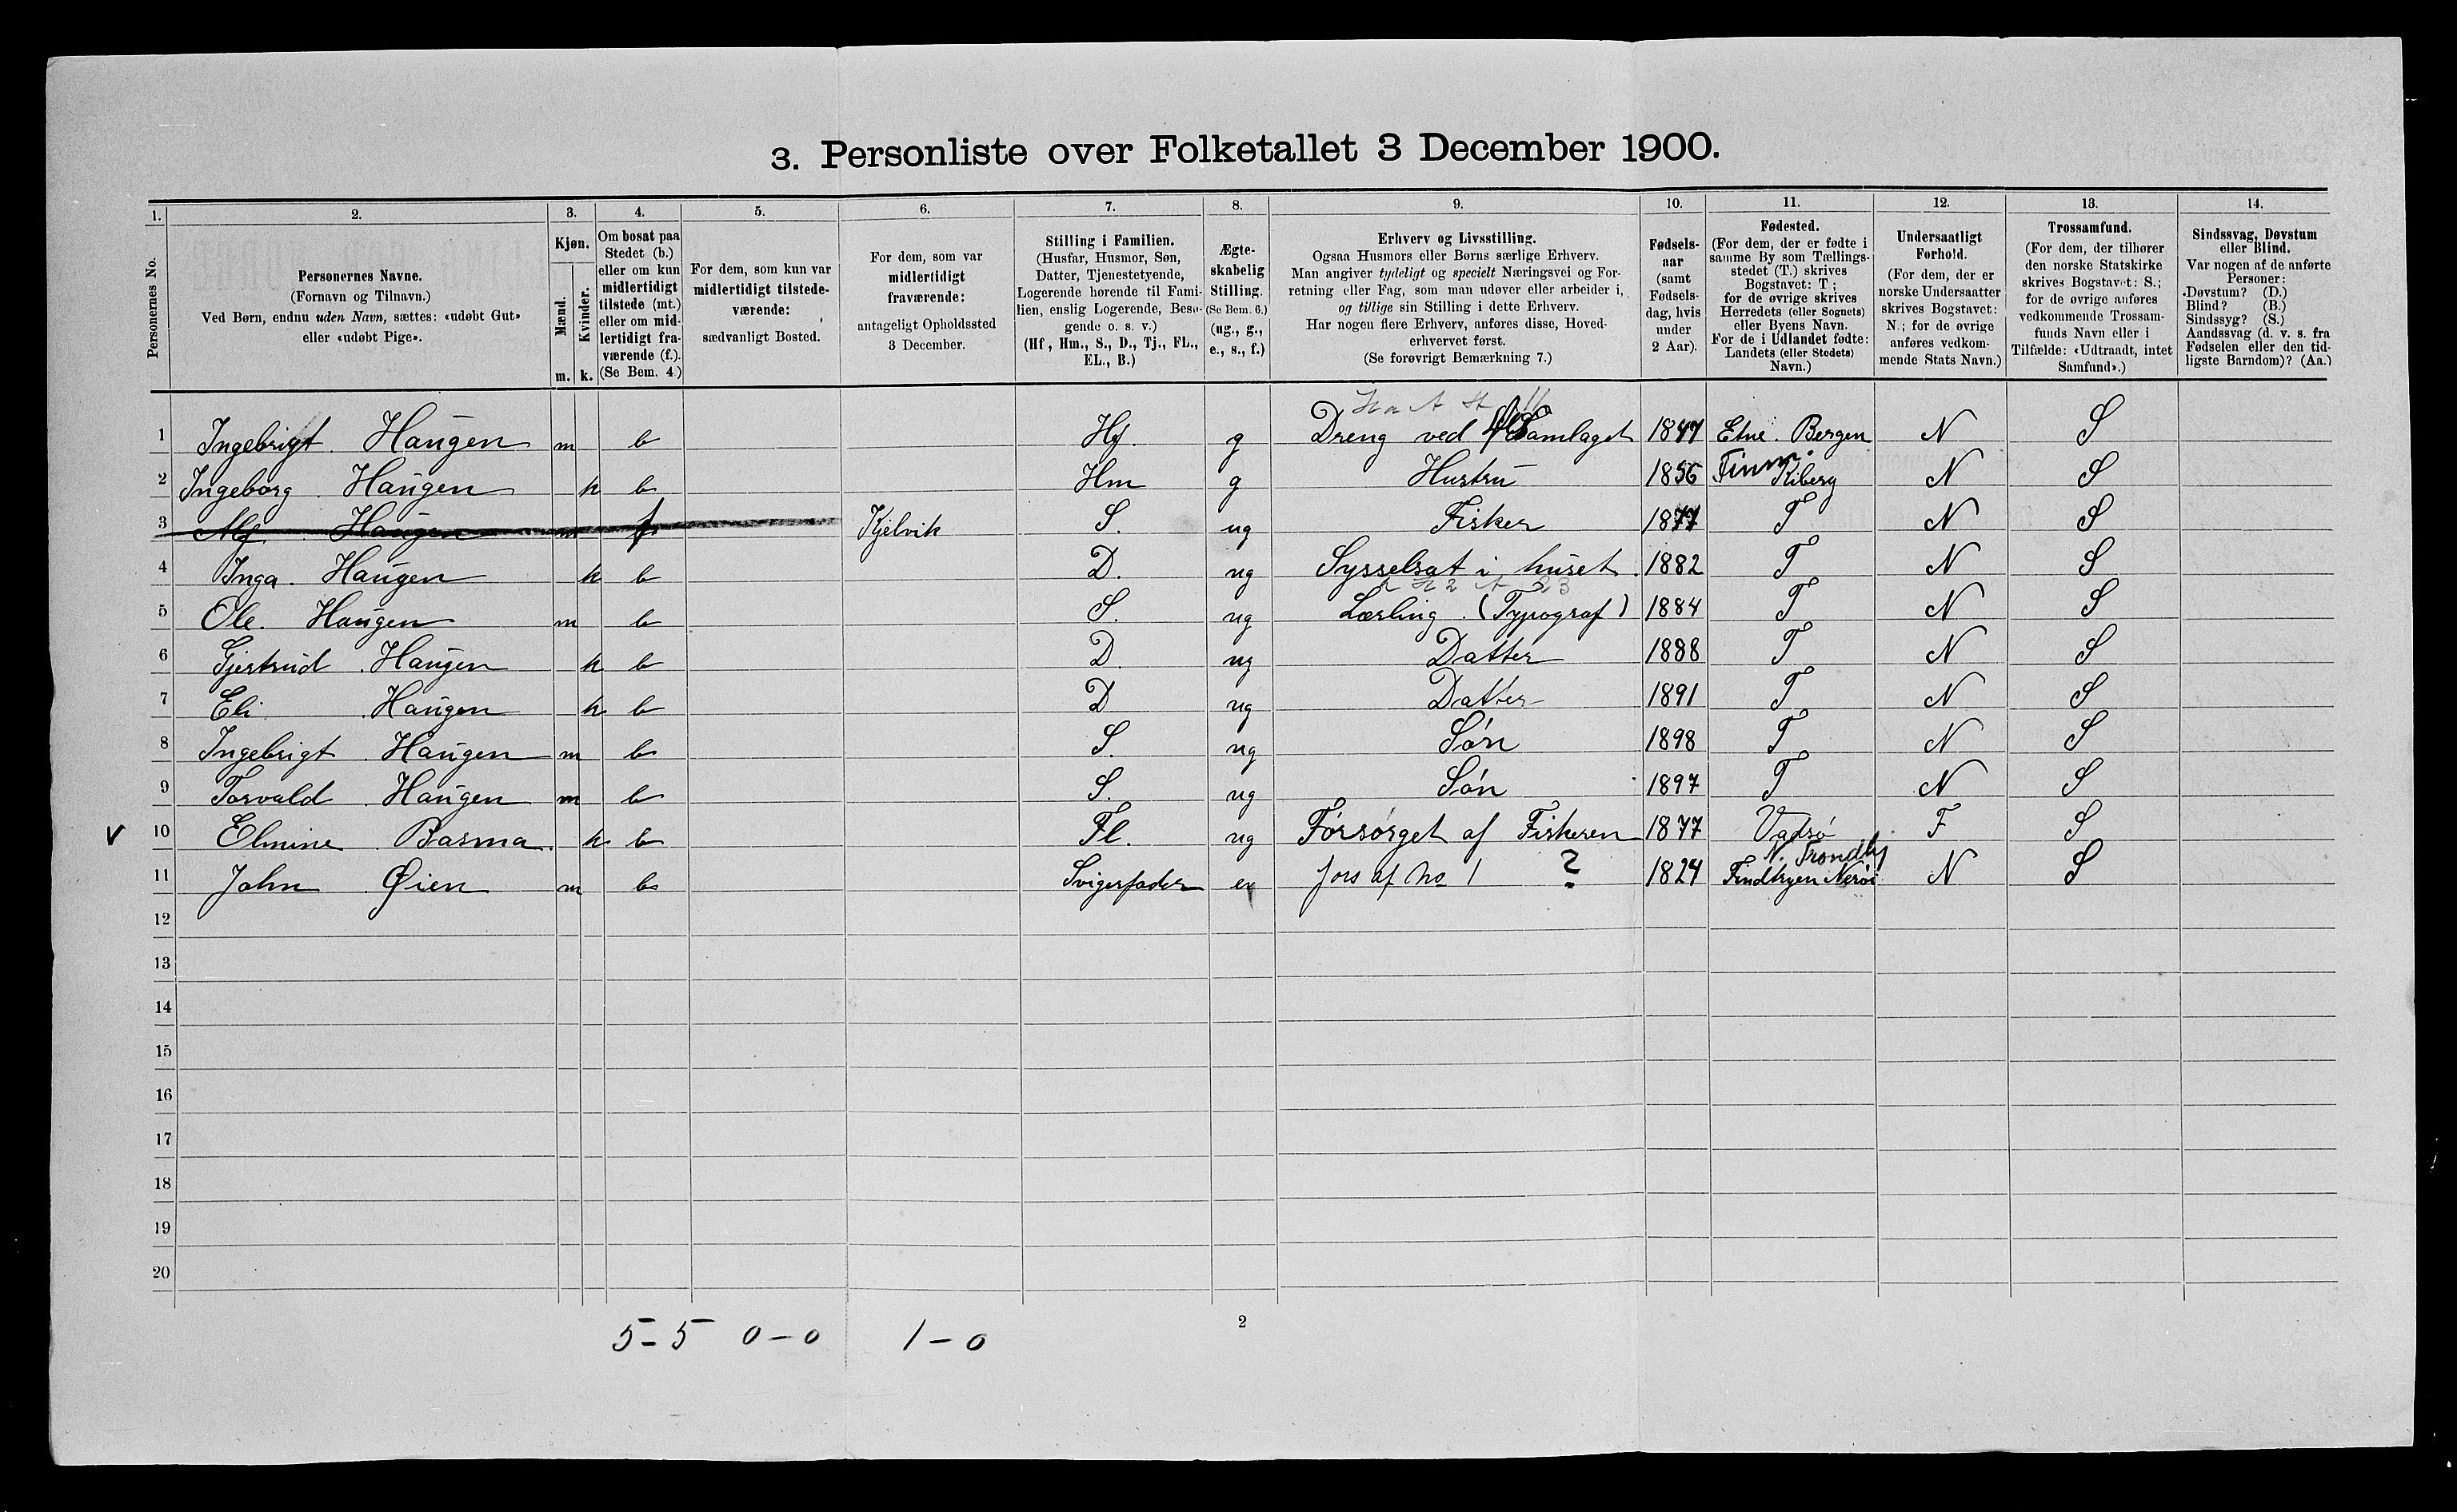 3. Personliste over Folketallet 3 December 1900.
1. 2. 3. 4. 5. 6. 7. 8. 9. 10. 11. 12. 13. 14.
Personernes No.
Personernes Navne.
(Fornavn og Tilnavn.)
Ved Børn, endnu uden Navn, sættes: «udøbt Gut»
eller «udøbt Pige».
Kjøn.
Mænd.
m.
Kvinder.
k.
Om bosat paa
Stedet (b.)
eller om kun
midlertidigt
tilstede (mt.)
eller om mid-
lertidigt fra-
værende (f.).
(Se Bem. 4.)
For dem, som kun var
midlertidigt tilstede-
værende:
sædvanligt Bosted.
For dem, som var
midlertidigt
fraværende:
antageligt Opholdssted
3 December.
Stilling i Familien.
(Husfar, Husmor, Søn,
Datter, Tjenestetyende,
Logerende hørende til Fami-
lien, enslig Logerende, Besø-
gende o. s. v.)
(Hf, Hm., S., D., Tj., FL.,
EL., B.)
Ægte-
skabelig
Stilling.
(Se Bem. 6.)
(ug., g.,
e., s., f.)
Erhverv og Livsstilling.
Ogsaa Husmors eller Børns særlige Erhverv.
Man angiver tydeligt og specielt Næringsvei og For-
retning eller Fag, som man udøver eller arbeider i,
og tillige sin Stilling i dette Erhverv.
Har nogen flere Erhverv, anføres disse, Hoved-
erhvervet først.
(Se forøvrigt Bemærkning 7.)
Fødsels-
aar
(samt
Fødsels-
dag, hvis
under
2 Aar).
Fødested.
(For dem, der er fødte i
samme By som Tællings-
stedet (T.) skrives
Bogstavet: T;
for de øvrige skrives
Herredets (eller Sognets)
eller Byens Navn.
For de i Udlandet fødte:
Landets (eller Stedets)
Navn.)
Undersaatligt
Forhold.
(For dem, der er
norske Undersaatter
skrives Bogstavet:
N.; for de øvrige
anføres vedkom-
mende Stats Navn.)
Trossamfund.
(For dem, der tilhører
den norske Statskirke
skrives Bogstavet: S.;
for de øvrige anføres
vedkommende Trossam-
funds Navn eller i
Tilfælde: «Udtraadt, intet
Samfund».)
Sindssvag, Døvstum
eller Blind.
Var nogen af de anførte
Personer:
Døvstum? (D.)
Blind? (B.)
Sindssyg? (S.)
Aandssvag (d. v. s. fra
Fødselen eller den tid-
ligste Barndom)? (Aa.)
1 Ingebrigt Haugen m b Hf. g Dreng ved Samlaget 1847 Etne. Bergen N S
2 Ingeborg Haugen k b Hm g Hustru 1856 Finm. Kiberg N S
3 Alf Haugen m f Kjelvik S. ug Fisker 1877 T N S
4 Inga Haugen k b D. ug Sysselsat i huset. 1882 T N S
5 Ole Haugen m b S. ug Lærling (Typograf) 1884 T N S
6 Gjertrud Haugen k b D. ug Datter 1888 T N S
7 Eli Haugen k b D ug Datter 1891 T N S
8 Ingebrigt Haugen m b S. ug Søn 1898 T N S
9 Torvald Haugen m b S. ug Søn 1897 T N S
V 10 Elmine Basma k b Fl. ug Forsørget af Fiskeren 1877 Vadsø F S
11 John Øien m b Svigerfader e fors af No 1 ? 1824 N. Trondhj N S
12
13
14
15
16
17
18
19
20
5-5 0-0 1-0
2